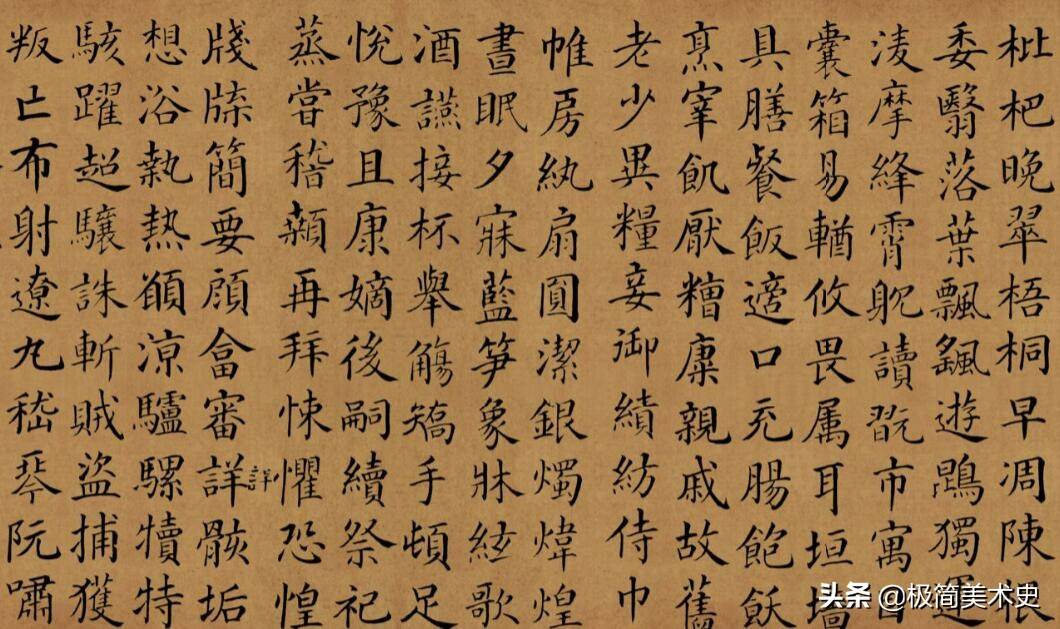 枇杷晚翠梧桐早凋陳根
委翳落葉飄颻遊鵾獨運
淩摩絳霄躭讀翫市寓
囊箱易輶攸畏属耳垣墻
具膳餐飯適口充腸飽飫
烹宰飢厭糟糠親戚故舊
老少異糧妾御績紡侍巾
帷房紈扇圓潔銀燭煒煌
晝眠夕寐藍笋象牀絃歌
酒讌接杯舉觴矯手頓足
悅豫且康嫡後嗣續祭祀
蒸嘗稽顙再拜悚懼恐惶
詳
牋牒簡要頋畣審詳骸垢
想浴執熱願涼驢騾犢特
駭躍超驤誅斬賊盜捕獲
叛亡布射遼丸嵇琴阮嘯
头条 @极简美术史